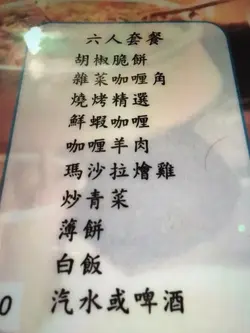 六人套餐
胡椒脆餅
雜菜咖喱角
燒烤精選
鮮蝦咖喱
咖喱羊肉
瑪沙拉燴雞
炒青菜
薄餅
白飯
0 汽水或啤酒